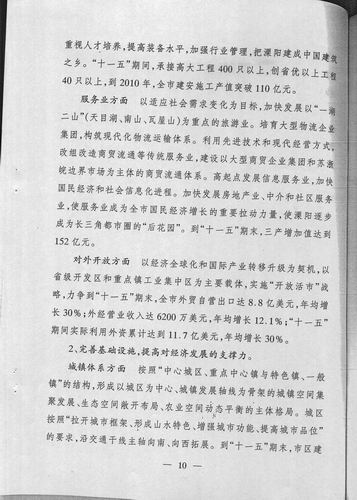 重视人才培养,提高装备水平,加强行业管理,把溧阳建成中国建筑
之乡。“十一五”期间,承接高大工程 400 只以上,创省优以上工程
40 只以上,到 2010 年,全市建安施工产值突破 110 亿元。
服务业方面 以适应社会需求变化为目标,加快发展以“一湖
二山”(天目湖、南山、瓦屋山)为重点的旅游业。培育大型物流企业
集团,构筑现代化物流运输体系。利用先进技术和现代经营方式,
改组改造商贸流通等传统服务业,建设以大型商贸企业集团和苏浙
皖边界市场为主体的商贸流通体系。高起点发展信息服务业,加快
国民经济和社会信息化进程。加快发展房地产业、中介和社区服务
业,使服务业成为全市国民经济增长的重要拉动力量,使溧阳逐步
成为长三角都市圈的“后花园”。到“十一五”期末,三产增加值达到
152 亿元。
对外开放方面 以经济全球化和国际产业转移升级为契机,以
省级开发区和重点镇工业集中区为主要载体,实施“开放活市”战
略,力争到“十一五”期末,全市外贸自营出口达 8.8 亿美元,年均增
长 30%;外经营业收入达 6200 万美元,年均增长 12.1%;“十一五”
期间实际利用外资累计达到 11.7 亿美元,年均增长 30%。
2、完善基础设施,提高对经济发展的支撑力。
城镇体系方面 按照“中心城区、重点中心镇与特色镇、一般
镇”的结构,形成以城区为中心、城镇发展轴线为骨架的城镇空间集
聚发展、生态空间敞开布局、农业空间动态平衡的主体格局。城区
按照“拉开城市框架、形成山水特色、增强城市功能、提高城市品位”
的要求,沿交通干线主轴向南、向西拓展。到“十一五”期末,市区建
— 10 —